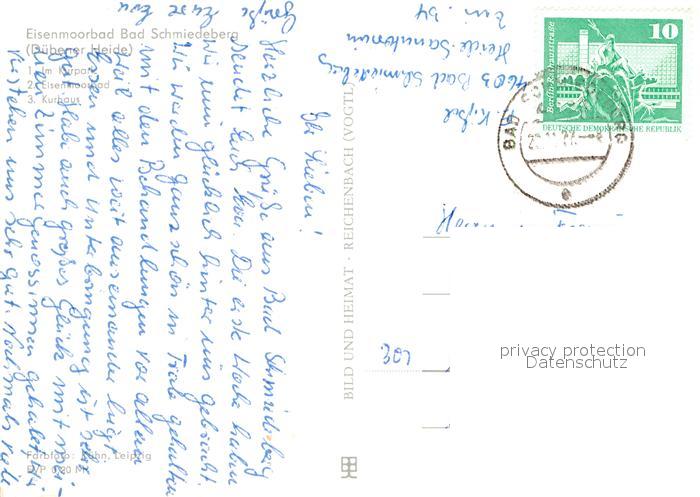 Eisenmoorbad Bad Schmiedeberg
(Dübener Heide)
1. Im Kurpark
2. Eisenmoorbad
3. Kurhaus
Ihr Lieben!
Herzliche Grüße aus Bad Schmiedeberg
sendet Euch Eva. Die erste Woche haben
wir nun glücklich hinter uns gebracht.
Wir werden ganz schön in Trab gehalten
mit den Behandlungen vor allem
weil alles weit auseinander liegt.
Essen und Unterbringung ist
Ich habe auch großes Glück mit
Zimmergenossinnen gehabt
verstehen uns sehr gut. Nochmals viele
Grüße Eure Eva
Farbfoto: Kühn, Leipzig
EVP 0,20 M
BILD UND HEIMAT · REICHENBACH (VOGTL)
Bad Schmiedeberg
Heide-Sanatorium
10
Berlin, Rathausstraße
DEUTSCHE DEMOKRATISCHE REPUBLIK
privacy protection
Datenschutz